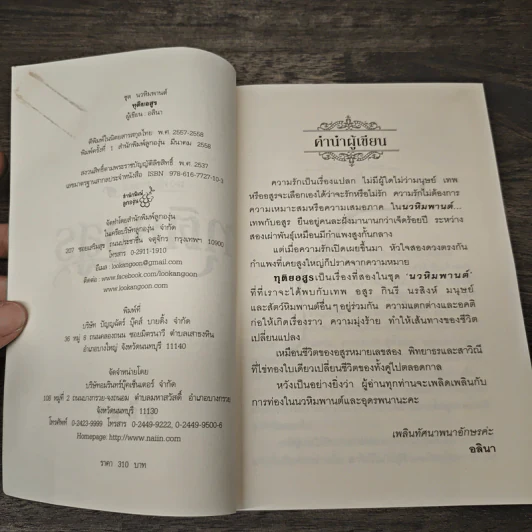 ชุด นวหิมพานต์
ทุติยอสูร
ผู้เขียน อลินา
ตีพิมพ์ในนิตยสารสกุลไทย พ.ศ. 2557-2558
พิมพ์ครั้งที่ 1 สำนักพิมพ์ลูกองุ่น มีนาคม 2558
สงวนลิขสิทธิ์ตามพระราชบัญญัติลิขสิทธิ์ พ.ศ. 2537
เลขมาตรฐานสากลประจำหนังสือ ISBN 978-616-7727-10-3
สำนักพิมพ์
ลูกองุ่น
จัดทำโดยสำนักพิมพ์ลูกองุ่น
ในเครือบริษัทลูกองุ่น จำกัด
207 ซอยเสริมสุข ถนนประชาชื่น จตุจักร กรุงเทพฯ 10900
โทรสาร 0-2911-1910
อีเมล lookangoon@gmail.com
ติดต่อ www.facebook.com/lookangoon
www.lookangoon.com
พิมพ์ที่
บริษัท ปัญญมิตร์ บุ๊คส์ บายดิ้ง จำกัด
30 หมู่ 6 ถนนคลองถนน ซอยมิตรนาวี ตำบลเสาธงหิน
อำเภอบางใหญ่ จังหวัดนนทบุรี 11140
จัดจำหน่ายโดย
บริษัทอมรินทร์บุ๊คเซ็นเตอร์ จำกัด
108 หมู่ที่ 2 ถนนบางกรวย-จงถนอม ตำบลมหาสวัสดิ์ อำเภอบางกรวย
จังหวัดนนทบุรี 11130
โทรศัพท์ 0-2423-9999 โทรสาร 0-2449-9222, 0-2449-9500-6
Homepage: http://www.naiin.com
ราคา 310 บาท
คำนำผู้เขียน
ความรักเป็นเรื่องแปลก ไม่มีผู้ใดไม่ว่ามนุษย์ เทพ
หรืออสูรจะเลือกเองได้ว่าจะรักหรือไม่รัก ความรักไม่ต้องการ
ความเหมาะสมหรือความเสมอภาค ในนวหิมพานต์...
เทพกับอสูร ยืนอยู่คนละฝั่งมานานกว่าเจ็ดร้อยปี ระหว่าง
สองเผ่าพันธุ์เหมือนมีกำแพงสูงกันกลาง
แต่เมื่อความรักเปิดเผยขึ้นมา หัวใจสองดวงตรงกัน
กำแพงที่เคยสูงใหญ่ก็ปราศจากความหมาย
ทุติยอสูรเป็นเรื่องที่สองในชุด 'นวหิมพานต์'
ที่ที่เราจะได้พบกับเทพ อสูร กินรี นรสิงห์ มนุษย์
และสัตว์หิมพานต์อื่นๆ อยู่ร่วมกัน ความแตกต่างและอคติ
ก่อให้เกิดเรื่องราว ความยุ่งร้าย ทำให้เส้นทางของชีวิต
เปลี่ยนแปลง
เหมือนชีวิตของอสูรหมายเลขสอง พิทยาธรและสาวิณี
ที่ไข่ทองใบเดียวเปลี่ยนชีวิตของทั้งคู่ไปตลอดกาล
หวังเป็นอย่างยิ่งว่า ผู้อ่านทุกท่านจะเพลิดเพลินกับ
การท่องในนวหิมพานต์และอุดรพนานะคะ
เพลินทัศนาพนาอักษรค่ะ
อลินา